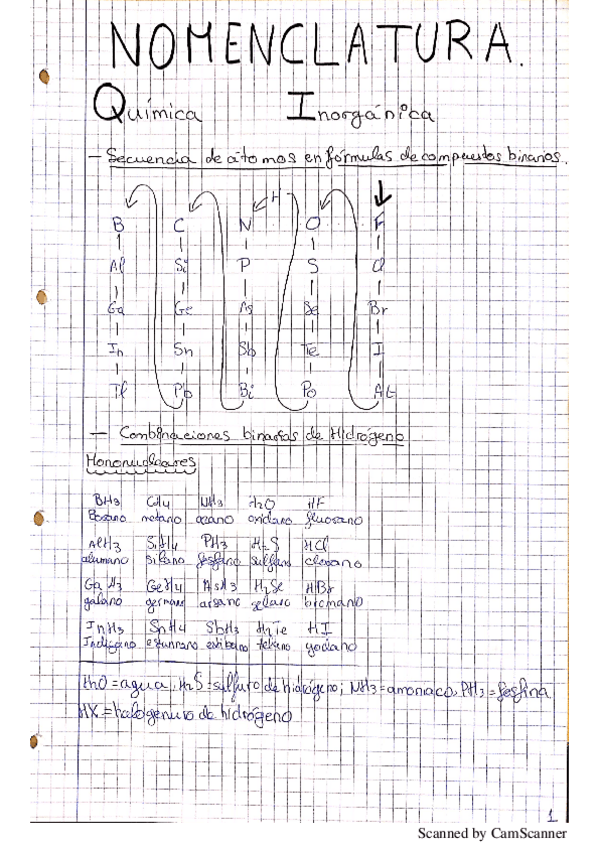 NOMENCLATURA.
Química Inorgánica
- Secuencia de átomos en fórmulas de compuestos binarios.
H
B C N O F
Al Si P S Cl
Ga Ge As Se Br
In Sn Sb Te I
Tl Pb Bi Po At
- Combinaciones binarias de Hidrógeno
Mononucleares
BH3 CH4 NH3 H2O HF
Borano metano azano oxidano fluorano
AlH3 SiH4 PH3 H2S HCl
alumano silano fosfano sulfano clorano
GaH3 GeH4 AsH3 H2Se HBr
galano germano arsano selano bromano
InH3 SnH4 SbH3 H2Te HI
estannano estibano telano yodano
H2O = agua, H2S = sulfuro de hidrógeno; NH3 = amoniaco, PH3 = fosfina
HX = halogenuro de hidrógeno
1
Scanned by CamScanner